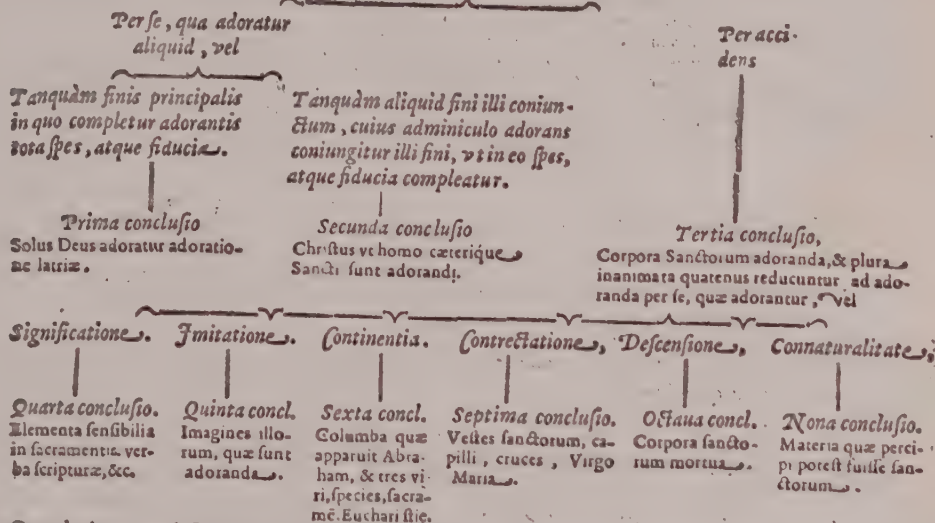 Per se, qua adoratur
aliquid, vel
Per acci-
dens
Tanquàm finis principalis
in quo completur adorantis
tota spes, atque fiducia.
Tanquàm aliquid fini illi coniun-
ctum, cuius adminiculo adorans
coniungitur illi fini, vt in eo spes,
atque fiducia compleatur.
Prima conclusio
Solus Deus adoratur adoratio-
ne latriæ.
Secunda conclusio
Christus vt homo cæterique
Sancti sunt adorandi.
Tertia conclusio,
Corpora Sanctorum adoranda, & plura
inanimata quatenus reducuntur ad ado-
randa per se, quæ adorantur, vel
Significatione. Imitatione. Continentia. Contrectatione, Descensione, Connaturalitate,
Quarta conclusio.
Elementa sensibilia
in sacramentis, ver-
ba scripturæ, &c.
Quinta concl.
Imagines illo-
rum, quæ sunt
adoranda.
Sexta concl.
Columba quæ
apparuit Abra-
ham, & tres vi-
ri, species, sacra-
mē. Eucharistie.
Septima conclusio.
Vestes sanctorum, ca-
pilli, cruces, Virgo
Maria.
Octaua concl.
Corpora sancto-
rum mortua.
Nona conclusio.
Materia quæ perci-
pi potest fuisse san-
ctorum.